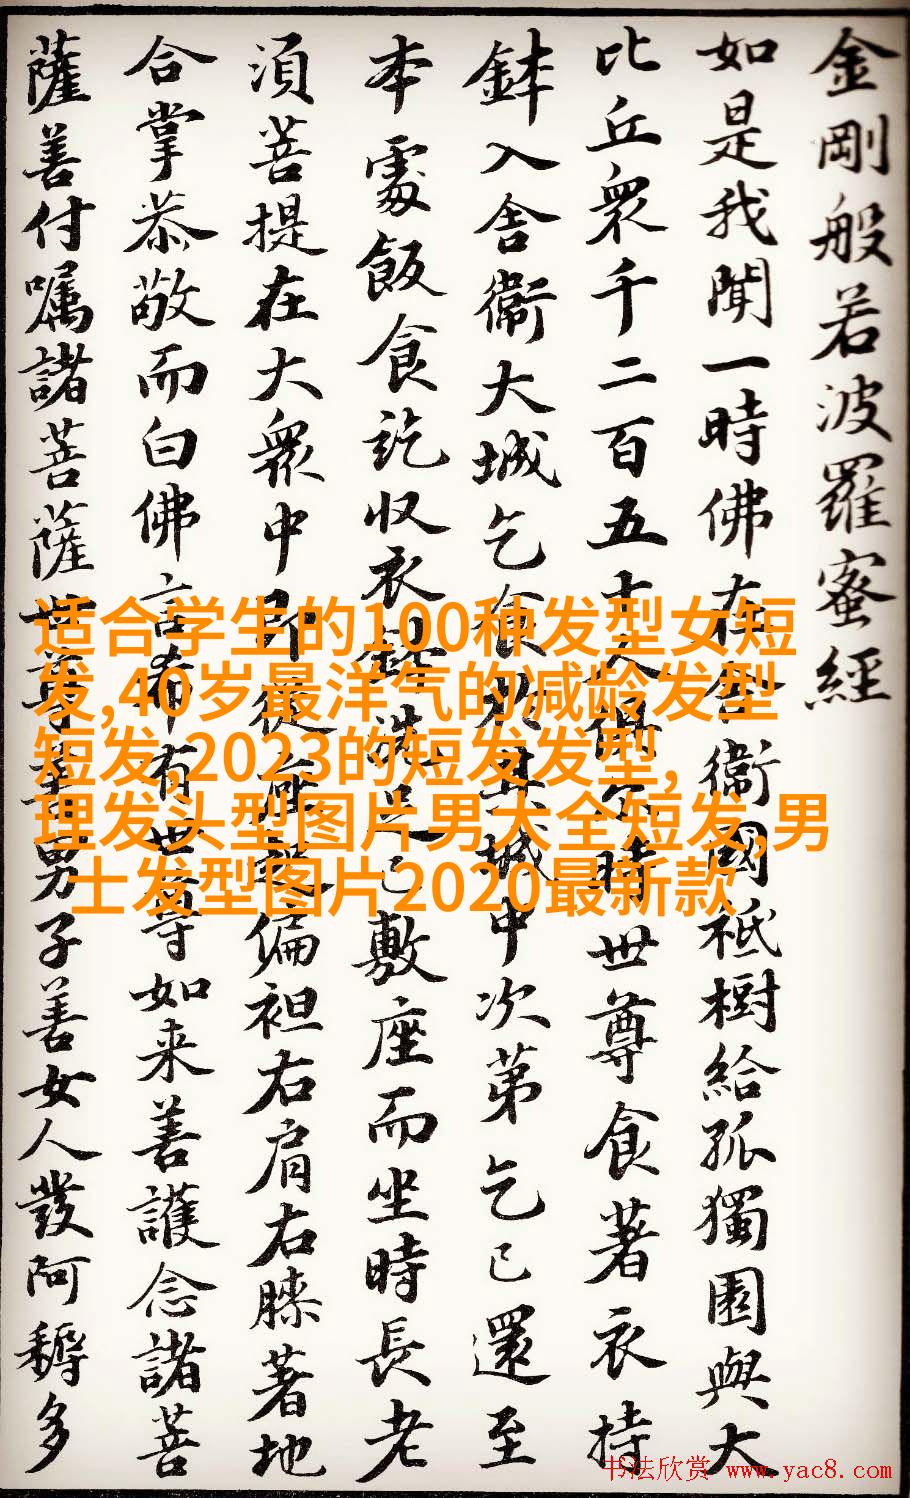 金剛般若波羅蜜經
如是我聞一時佛在舍衛國祇樹給孤獨園與大
比丘衆千二百五十人俱尒時世尊食著衣持
鉢入舎衛大城乞食於其城中次第乞已還至
本處飯食訖収衣鉢洗足已敷座而坐時長老
須菩提在大衆中即從座起偏袒右肩右膝著地
合掌恭敬而白佛言希有世尊如来善護念諸菩
薩善付嘱諸菩薩世尊善男子善女人發阿耨多
适合学生的100种发型女短
发,40岁最洋气的减龄发型
短发,2023的短发发型,
理发头型图片男大全短发,男
士发型图片2020最新款
书法欣赏 www.yac8.com